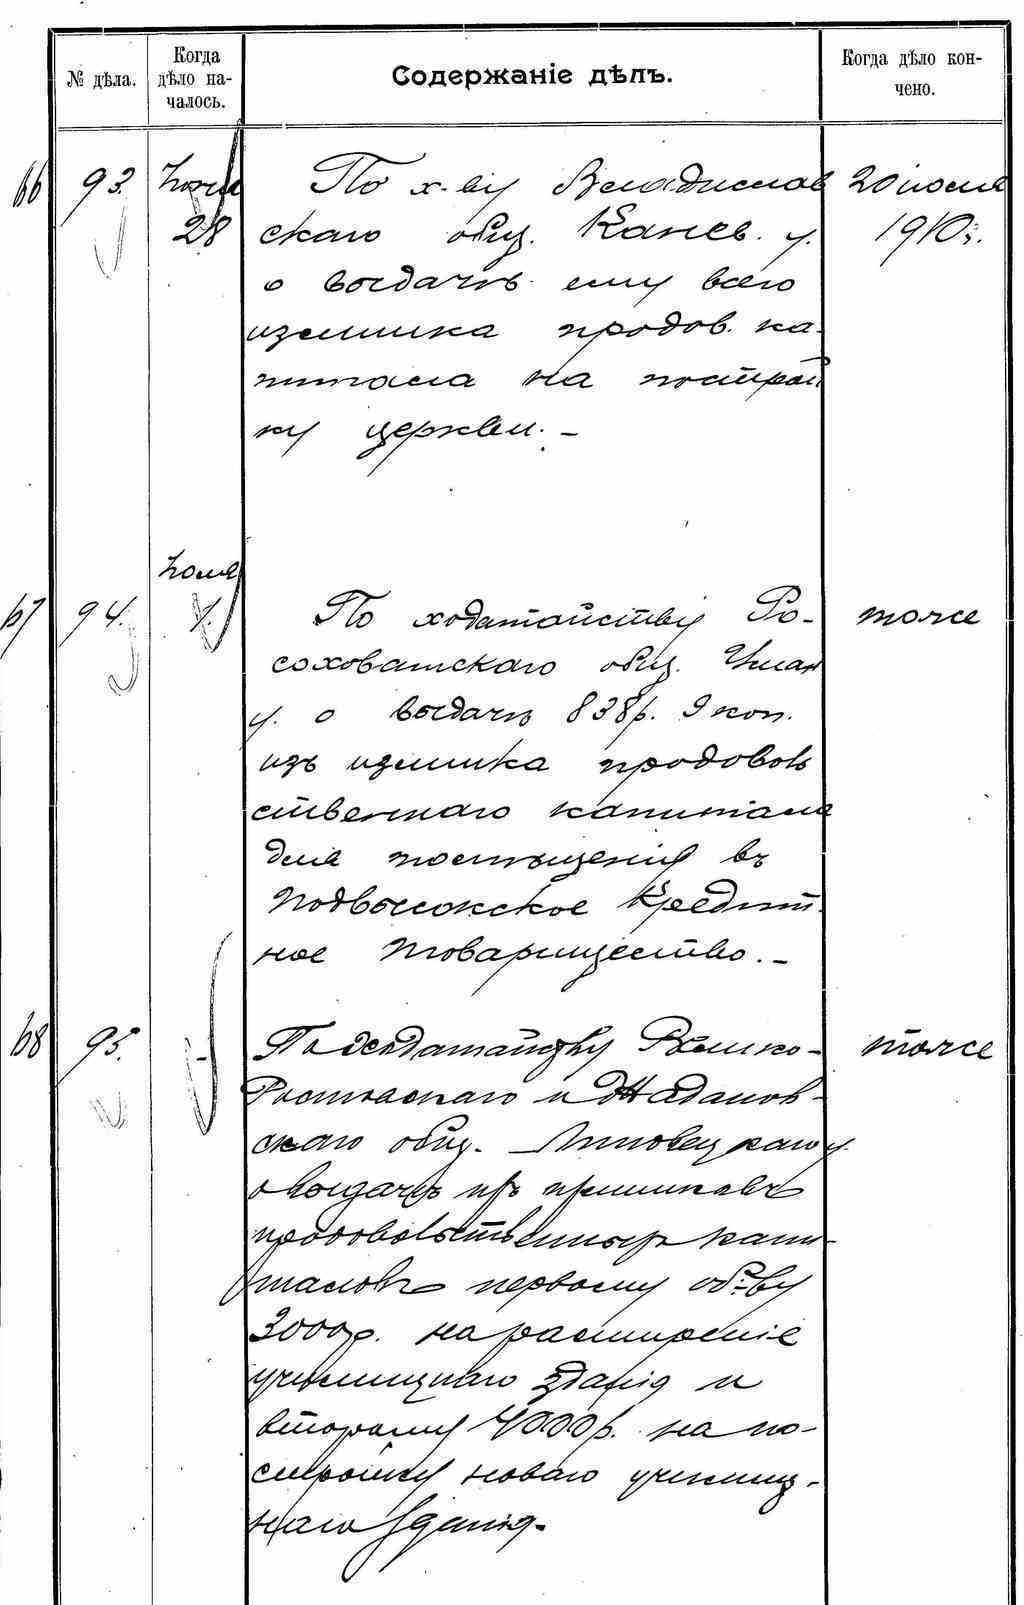 № дѣла.
Когда дѣло на-
чалось.
Содержаніе дѣлъ.
Когда дѣло кон-
чено.
66 93. 28 По х-ву Владислав
скаго общ. Канев. у.
о выдачѣ ему всего
излишка продов. ка-
питала на построй
ку церкви. –
20 іюля
1910 г.
67 94. Іюля 1. По ходатайству Ро-
соховатскаго общ. Уман
у. о выдачѣ 838 р. 9 коп.
изъ излишка продоволь
ственнаго капитала
для помѣщенія въ
Подвысокское Кредит
ное Товарищество. –
тоже
68 95. - По ходатайству Велико-
Ростовскаго и Жадановс-
скаго общ. Липовецкаго у.
о выдачѣ изъ
продовольственныхъ капи-
таловъ первому об-ву
3000 р. на расширеніе
училищнаго зданія и
второму 4000 р. на по-
стройку новаго училищ-
наго зданія.
тоже